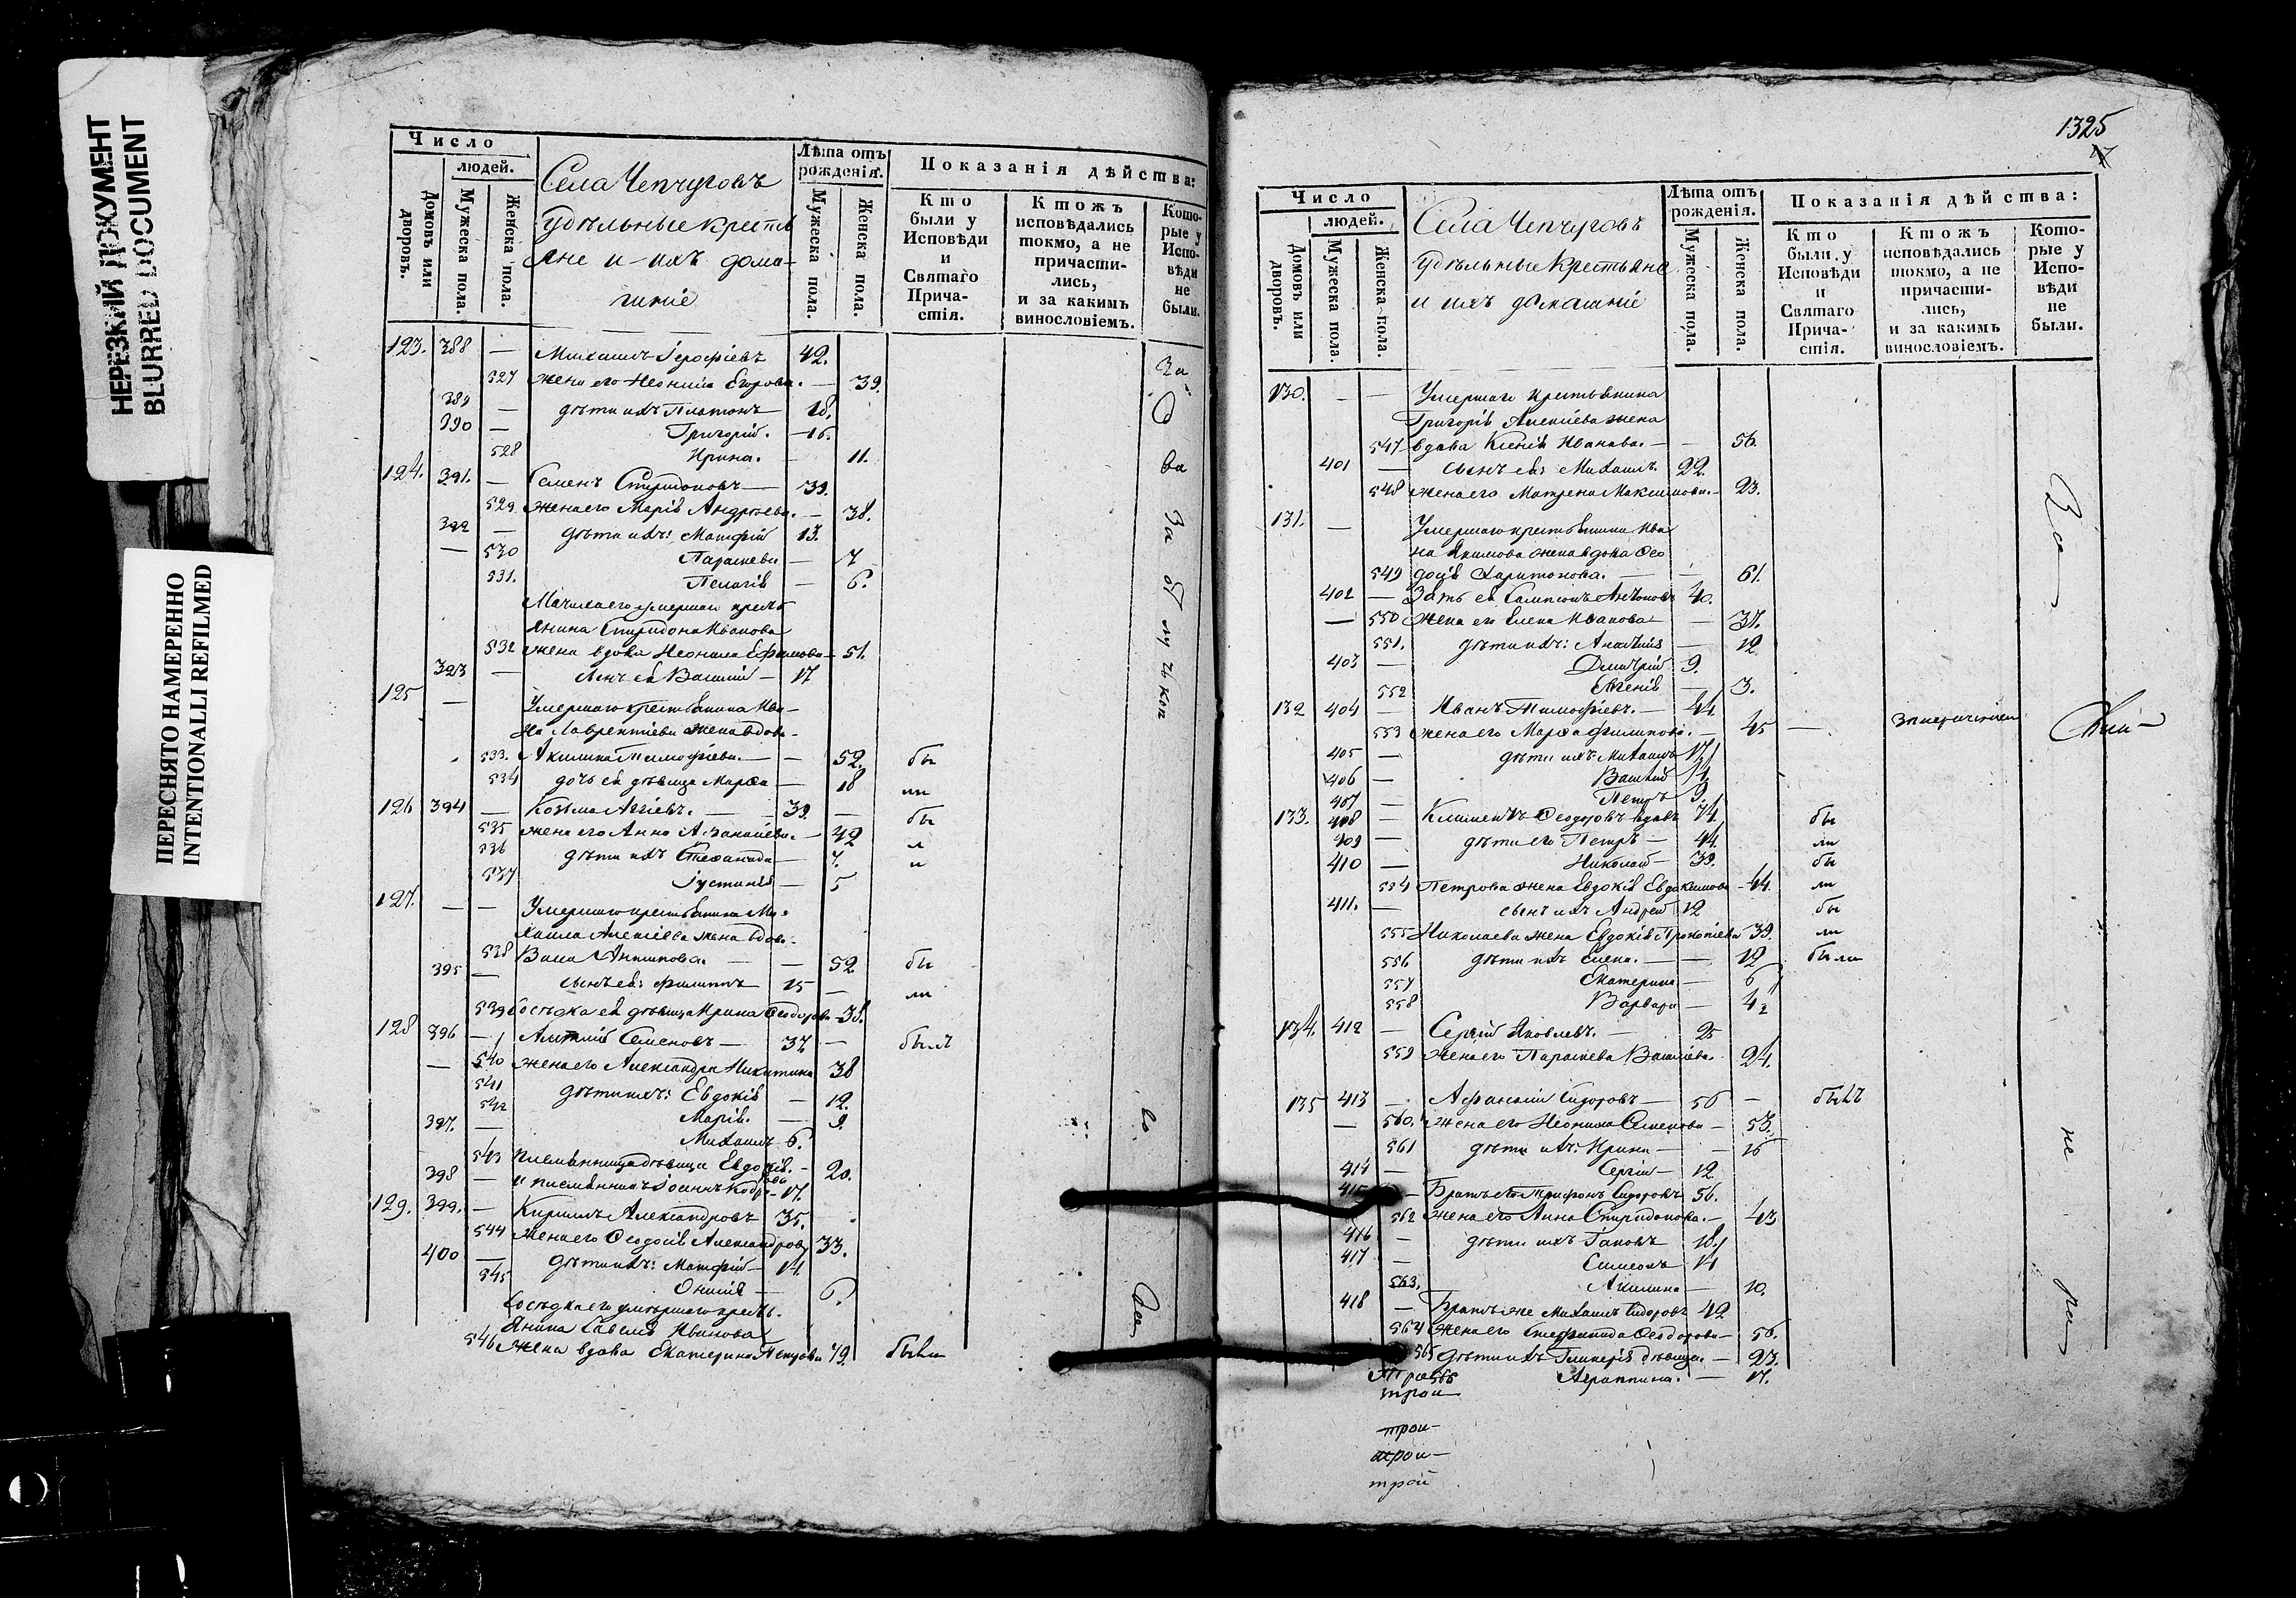 НЕРЕЗКИЙ ДОКУМЕНТ
BLURRED DOCUMENT
ПЕРЕСНЯТО НАМЕРЕННО
INTENTIONALLI REFILMED
Число
людей.
Домовъ или дворовъ.
Мужеска пола.
Женска пола.
Села Чепчуговъ
удѣльные кресть
яне и ихъ дома-
шніе
Лѣта отъ рожденія.
Мужеска пола.
Женска пола.
Показанія дѣйства:
Кто были у Исповѣди и Святаго Причастія.
Ктожъ исповѣдались токмо, а не причастились, и за какимъ винословіемъ.
Которые у Исповѣди не были.
123. 388 — Михаилъ Іерофіевъ 42.
527 жена его Неонила Егорова. — 39.
389 — дѣти ихъ Платонъ 18.
390 — Григорій. — 16.
528 Ирина. — 11.
124. 391. — Семенъ Спиридоновъ — 39.
529 жена его Марія Андреева. — 38.
392 — дѣти ихъ: Матфій 13.
— 530 Параскева — 7
531. Пелагія — 6.
Мачиха его умершаго кресть
янина Спиридона Иванова
532 жена вдова Неонила Ефимова — 51.
393 — сынъ ея Василій — 17
125 — Умершаго крестьянина Ива-
на Лаврентіева жена вдова-
533. Акилина Тимофіева. — — 52. бы
534 дочь ея дѣвица Марфа — 18 ли
126 394 — Козьма Авіевъ. — 39. — бы
535 жена его Анна Аѳанасіева. — 42 л
536 дѣти ихъ Стефанида — 7. и
537 Іустинія — 5
127. — — Умершаго крестьянина Ми-
хаила Алексіева жена вдова-
538 Васса Антипова. — — 52 бы
395 — сынъ ея: Филиппъ 15 — ли
539 Сосѣдка ея дѣвица Ирина Ѳеодорова — 38.
128 396 — Алексій Семеновъ — 37. — былъ
— 540 жена его Александра Никитина 38
541 дѣти ихъ: Евдокія — 12.
542 Марія. — 9.
397. — Михаилъ 6.
543 племянница дѣвица Евдокія. — 20.
398 — и племянникъ Іоаннъ 17.
129. 399. — Кириллъ Александровъ 35.
544 Жена его Ѳеодосія Александрова 33.
400 — дѣти ихъ: Матфій — 14.
545 Онисія — 6.
Сосѣдка его умершаго кресть.
янина Савелія Иванова
546 жена вдова Екатерина Петрова 79. были
За
О
ва
За
от
лу
ч
кою
1325
Число
людей.
Домовъ или дворовъ.
Мужеска пола.
Женска пола.
Села Чепчуговъ
удѣльные крестьяне
и ихъ домашніе
Лѣта отъ рожденія.
Мужеска пола.
Женска пола.
Показанія дѣйства:
Кто были у Исповѣди и Святаго Причастія.
Ктожъ исповѣдались токмо, а не причастились, и за какимъ винословіемъ.
Которые у Исповѣди не были.
130. — — Умершаго крестьянина
Григорія Алексіева жена
547 вдова Ксенія Иванова. — — 56.
401 — сынъ ея: Михаилъ 22.
548 жена его Матрена Максимова. — 23.
131. — Умершаго крестьянина Ива
на Якимова жена вдова Ѳео
549 досія Харитонова. — — 61.
402 — Зять ея Сампсонъ Антоновъ 40.
— 550 жена его Елена Иванова — 37.
551. дѣти ихъ: Анастасія — 12
403 — Димитрій 9.
552 Евгенія — 3.
132 404 — Иванъ Тимофіевъ. — 44.
553 жена его Марфа Филипова. — 45 —
405 — дѣти ихъ Михаилъ 17
406 — Василій 14
407 — Петръ 9.
133. 408 — Климентъ Ѳеодоровъ вдовъ 74. бы
409 — дѣти его Петръ — 44. ли
410 — Николай — 39. бы
554 Петрова жена Евдокія Евдокимова — 44. ли
411. — сынъ ихъ Андрей 12 бы
555 Николаева жена Евдокія Прокопіева 39. ли
556 дѣти ихъ Елена. — — 12 были
557 Екатерина — 6
558 Варвара — 4
134. 412 — Сергій Яковлевъ. — 25
559 жена его Параскева Василіева. 24.
135 413 — Аѳанасій Сидоровъ — 56 — былъ
— 560. жена его Неонила Семенова — 53.
561 дѣти ихъ: Ирина — — 16
414 — Сергій — 12
415 — Братъ его Трифонъ Сидоровъ 56.
562 жена его Анна Спиридонова. — 43
416 — дѣти ихъ Іаковъ 18.
417 — Симеонъ 14
563. Акилина — 10.
418 — Братъ же Михаилъ Сидоровъ 42
564 жена его Стефанида Ѳеодорова — 56.
565 дѣти ихъ Гликерія дѣвица. — 23.
566 Агриппина. — 17.
За
не
трои
трои-
трои-
трой